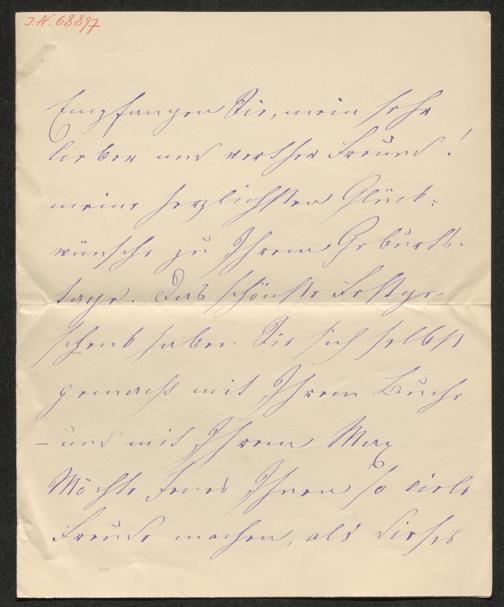 I.N. 68897
Empfangen Sie, mein sehr
lieber und werther Freund!
meine herzlichsten Glück-
wünsche zu Ihrem Geburts-
tage. Das schönste Festge-
schenk haben Sie sich selbst
gemacht mit Ihrem Buche
– und mit Ihrem Max.
Möchte Jenes Ihnen so viele
Freude machen, als dieses